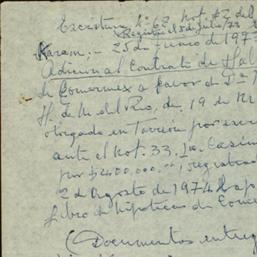 Escritura No. 62, Not. #2 del
Registro el 5 de julio/73
Karam. - 25 de junio de 197
Adición al Contrato de Hab
de Comermex a favor de
H. de M. del Río, de 19 de
otorgado en Torreón por
ante el Not. 33, Lic. Casim
por $400.000.00, registrado
2 de Agosto de 1974 bajo
Libro de Hipotecas de Comer
(Documentos entreg